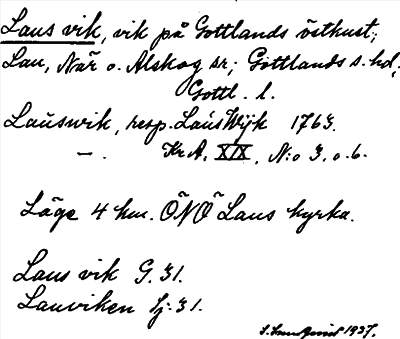 Laus vik, vik på Gottlands östkust;
Lau, När o. Alskog sr; Gottlands s. hd,
Gottl. l.
Lausvik, resp. Laus Wijk 1763.
—. KrA, XIX, N:o 3, o. 6.
Läge 4 km. ÖNÖ Laus kyrka.
Laus vik G. 31.
Lauviken Sj: 31.
1937.